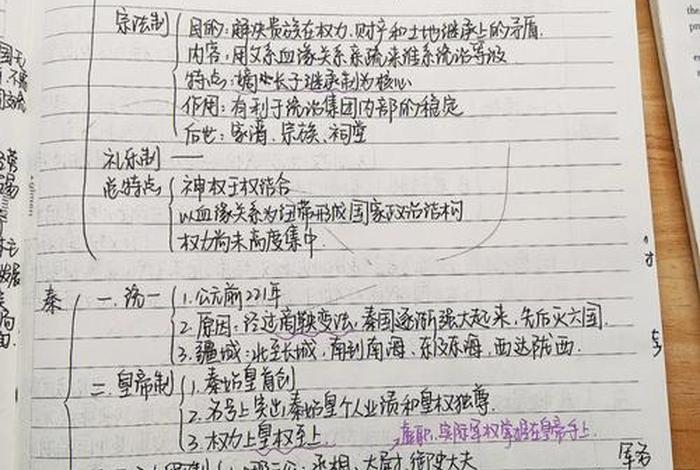 宗法制 目的：解决贵族在权力、财产和土地继承上的矛盾.
内容：用父系血缘关系亲疏来维系统治等级
特点：嫡长子继承制为核心
作用：有利于统治集团内部的稳定
后世：家谱、宗族、祠堂
礼乐制 ——
总特点 神权王权结合
以血缘关系为纽带形成国家政治结构
权力尚未高度集中.
秦 一. 统一 1. 公元前221年
2. 原因：经过商鞅变法，秦国逐渐强大起来，先后灭六国.
3. 疆域：北至长城，南到南海、东及东海，西达陇西.
二. 皇帝制 1. 秦始皇首创
2. 名号上突出秦始皇个人业绩和皇权独尊.
3. 权力上皇权至上.
虚职，实际军权掌握在皇帝手上.
丞相、太尉、御史大夫